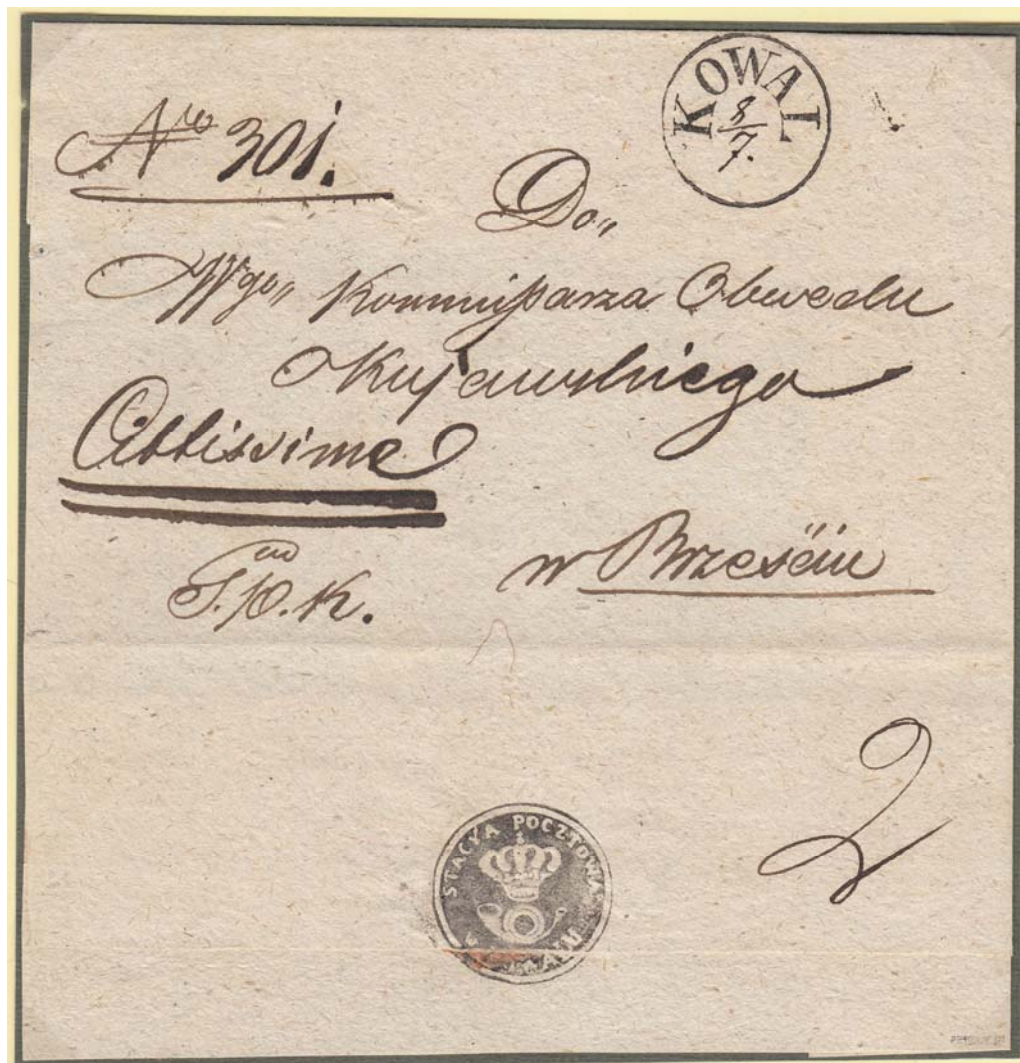 KOWAL
8/7.
Nro 301.
Do„
Wgo„ Kommissarza Obwodu
Kujawskiego
Cittissime
w Brześciu
2
STACYA POCZTOWA